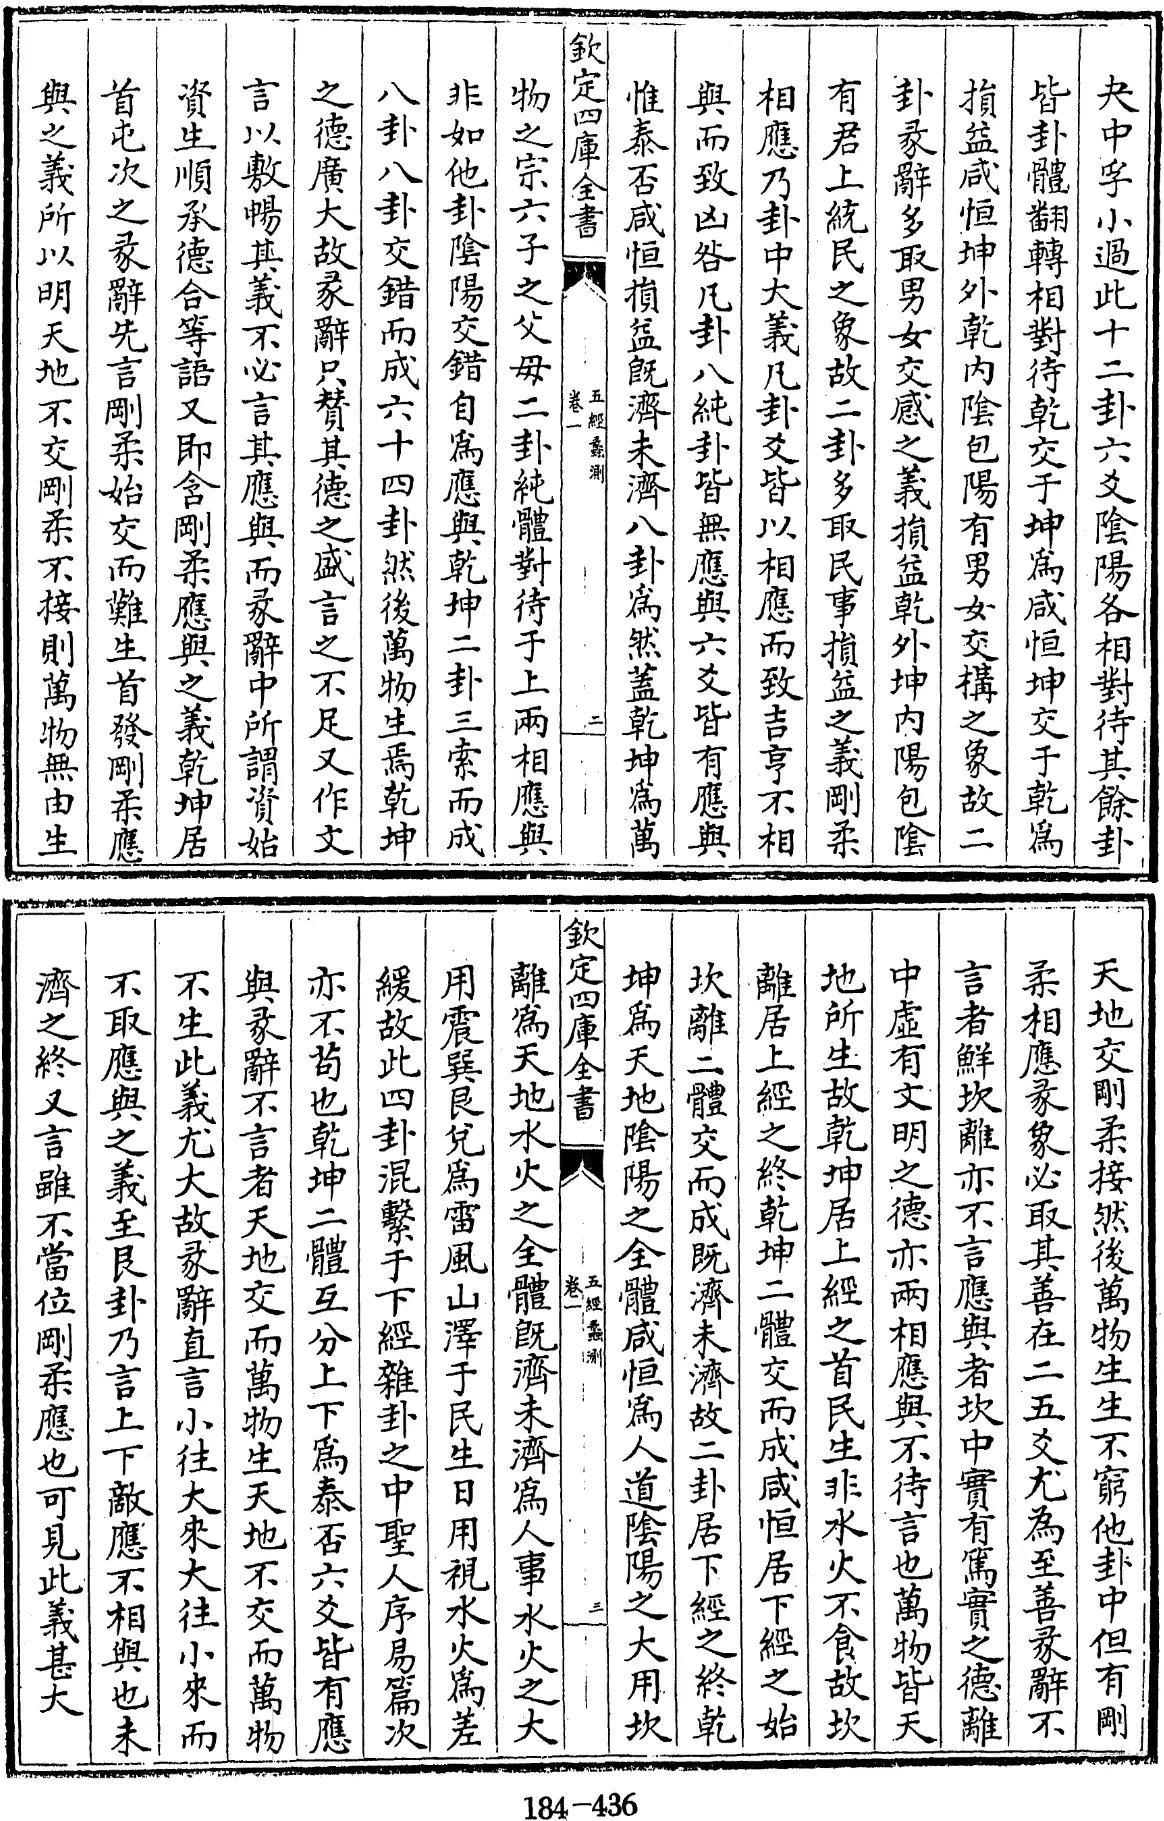 夬中孚小過此十二卦六爻陰陽各相對待其餘卦
皆卦體翻轉相對待乾交于坤為咸恒坤交于乾為
損益咸恒坤外乾内陰包陽有男女交構之象故二
卦彖辭多取男女交感之義損益乾外坤内陽包陰
有君上統民之象故二卦多取民事損益之義剛柔
相應乃卦中大義凡卦爻皆以相應而致吉亨不相
與而致凶咎凡卦八純卦皆無應與六爻皆有應與
惟泰否咸恒損益既濟未濟八卦為然蓋乾坤為萬
欽定四庫全書
五經蠡測
卷一
二
物之宗六子之父母二卦純體對待于上兩相應與
非如他卦陰陽交錯自為應與乾坤二卦三索而成
八卦八卦交錯而成六十四卦然後萬物生焉乾坤
之德廣大故彖辭只賛其德之盛言之不足又作文
言以敷暢其義不必言其應與而彖辭中所謂資始
資生順承德合等語又即含剛柔應與之義乾坤居
首屯次之彖辭先言剛柔始交而難生首發剛柔應
與之義所以明天地不交剛柔不接則萬物無由生
天地交剛柔接然後萬物生生不窮他卦中但有剛
柔相應彖象必取其善在二五爻尤為至善彖辭不
言者鮮坎離亦不言應與者坎中實有篤實之德離
中虛有文明之德亦兩相應與不待言也萬物皆天
地所生故乾坤居上經之首民生非水火不食故坎
離居上經之終乾坤二體交而成咸恒居下經之始
坎離二體交而成既濟未濟故二卦居下經之終乾
坤為天地陰陽之全體咸恒為人道陰陽之大用坎
欽定四庫全書
五經蠡測
卷一
三
離為天地水火之全體既濟未濟為人事水火之大
用震巽艮兌為雷風山澤于民生日用視水火為差
緩故此四卦混繫于下經雜卦之中聖人序易篇次
亦不苟也乾坤二體互分上下為泰否六爻皆有應
與彖辭不言者天地交而萬物生天地不交而萬物
不生此義尤大故彖辭直言小往大來大往小來而
不取應與之義至艮卦乃言上下敵應不相與也未
濟之終又言雖不當位剛柔應也可見此義甚大
184-436